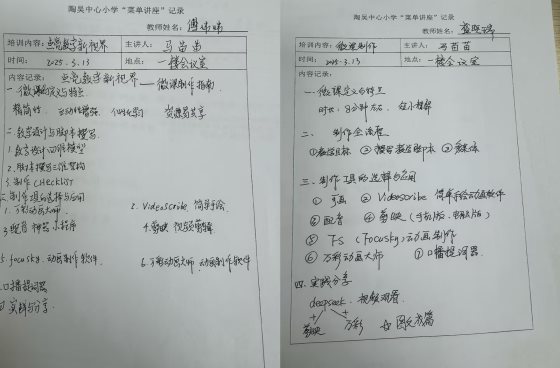 陶吴中心小学“菜单讲座”记录
教师姓名:
培训内容: 点亮数字新视界 主讲人: 马苗苗
时间: 2025.3.13 地点: 一楼会议室
内容记录: 点亮数字新视界——微课制作指南
一 微课的定义与特点
精简性 互动性增强 个性化学习 资源易共享
二 教学设计与脚本撰写
1. 教学设计四维模型
2. 脚本撰写三维架构
3. 制作 CHECKlist
三 制作工具的选择与应用
1. 万彩动画大师
2. VideoScribe 简易手绘
3. 配音神器 小程序
4. 剪映 视频剪辑
5. focusky 动画制作软件
6. 万彩动画大师 动画制作软件
口播提词器
实践与分享
陶吴中心小学“菜单讲座”记录
教师姓名:
培训内容: 微课制作 主讲人: 马苗苗
时间: 2025.3.13 地点: 一楼会议室
内容记录:
一. 微课定义与特点
时长: 8分钟左右
二. 制作全流程
①教学目标 ②撰写教学脚本 ③
三. 制作工具的选择与应用
① 可画 ② Videoscribe 简单手绘动画软件
③ 配音 ④ 剪映 (手机版、电脑版)
⑤ FS (Focusky) 动画制作
⑥ 万彩动画大师 ⑦ 口播提词器
四. 实践分享
deepseek
剪映 万彩 图文成篇